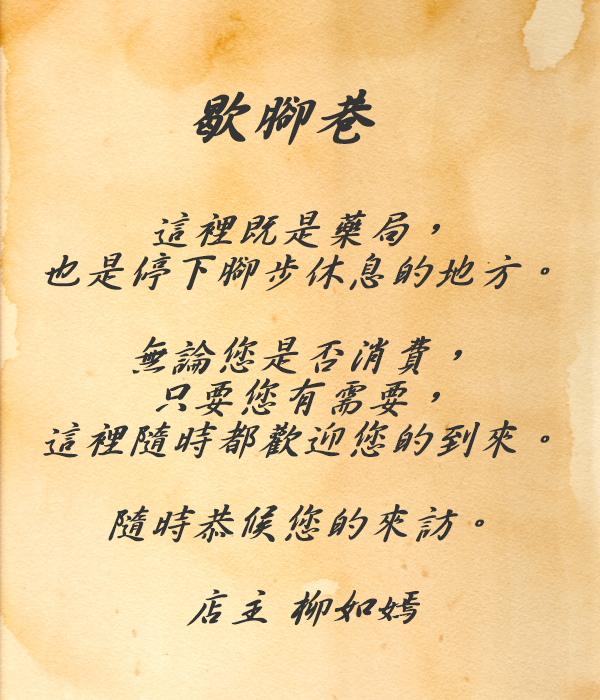 歇腳巷
這裡既是藥局，
也是停下腳步休息的地方。
無論您是否消費，
只要您有需要，
這裡隨時都歡迎您的到來。
隨時恭候您的來訪。
店主 柳如嫣